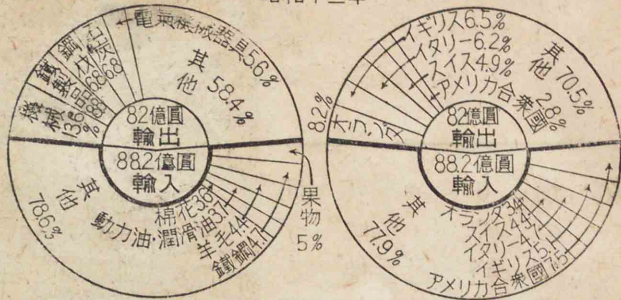 電氣機械器具5.6%
石炭6.8
鋼6.8
鐵製品8.8
機械13.6%
其他 58.4%
82億圓
輸出
88.2億圓
輸入
其他
78.6%
棉花3.6
動力油・潤滑油3.7
羊毛4.4
鐵鋼4.7
果物
5%
イギリス6.5%
イタリー6.2%
スイス4.9%
アメリカ合衆國
2.8%
其他 70.5%
8.2%
オランダ
82億圓
輸出
88.2億圓
輸入
其他
77.9%
オランダ3.4
スイス4.4
イタリー4.7
イギリス5.1
アメリカ合衆國7.5